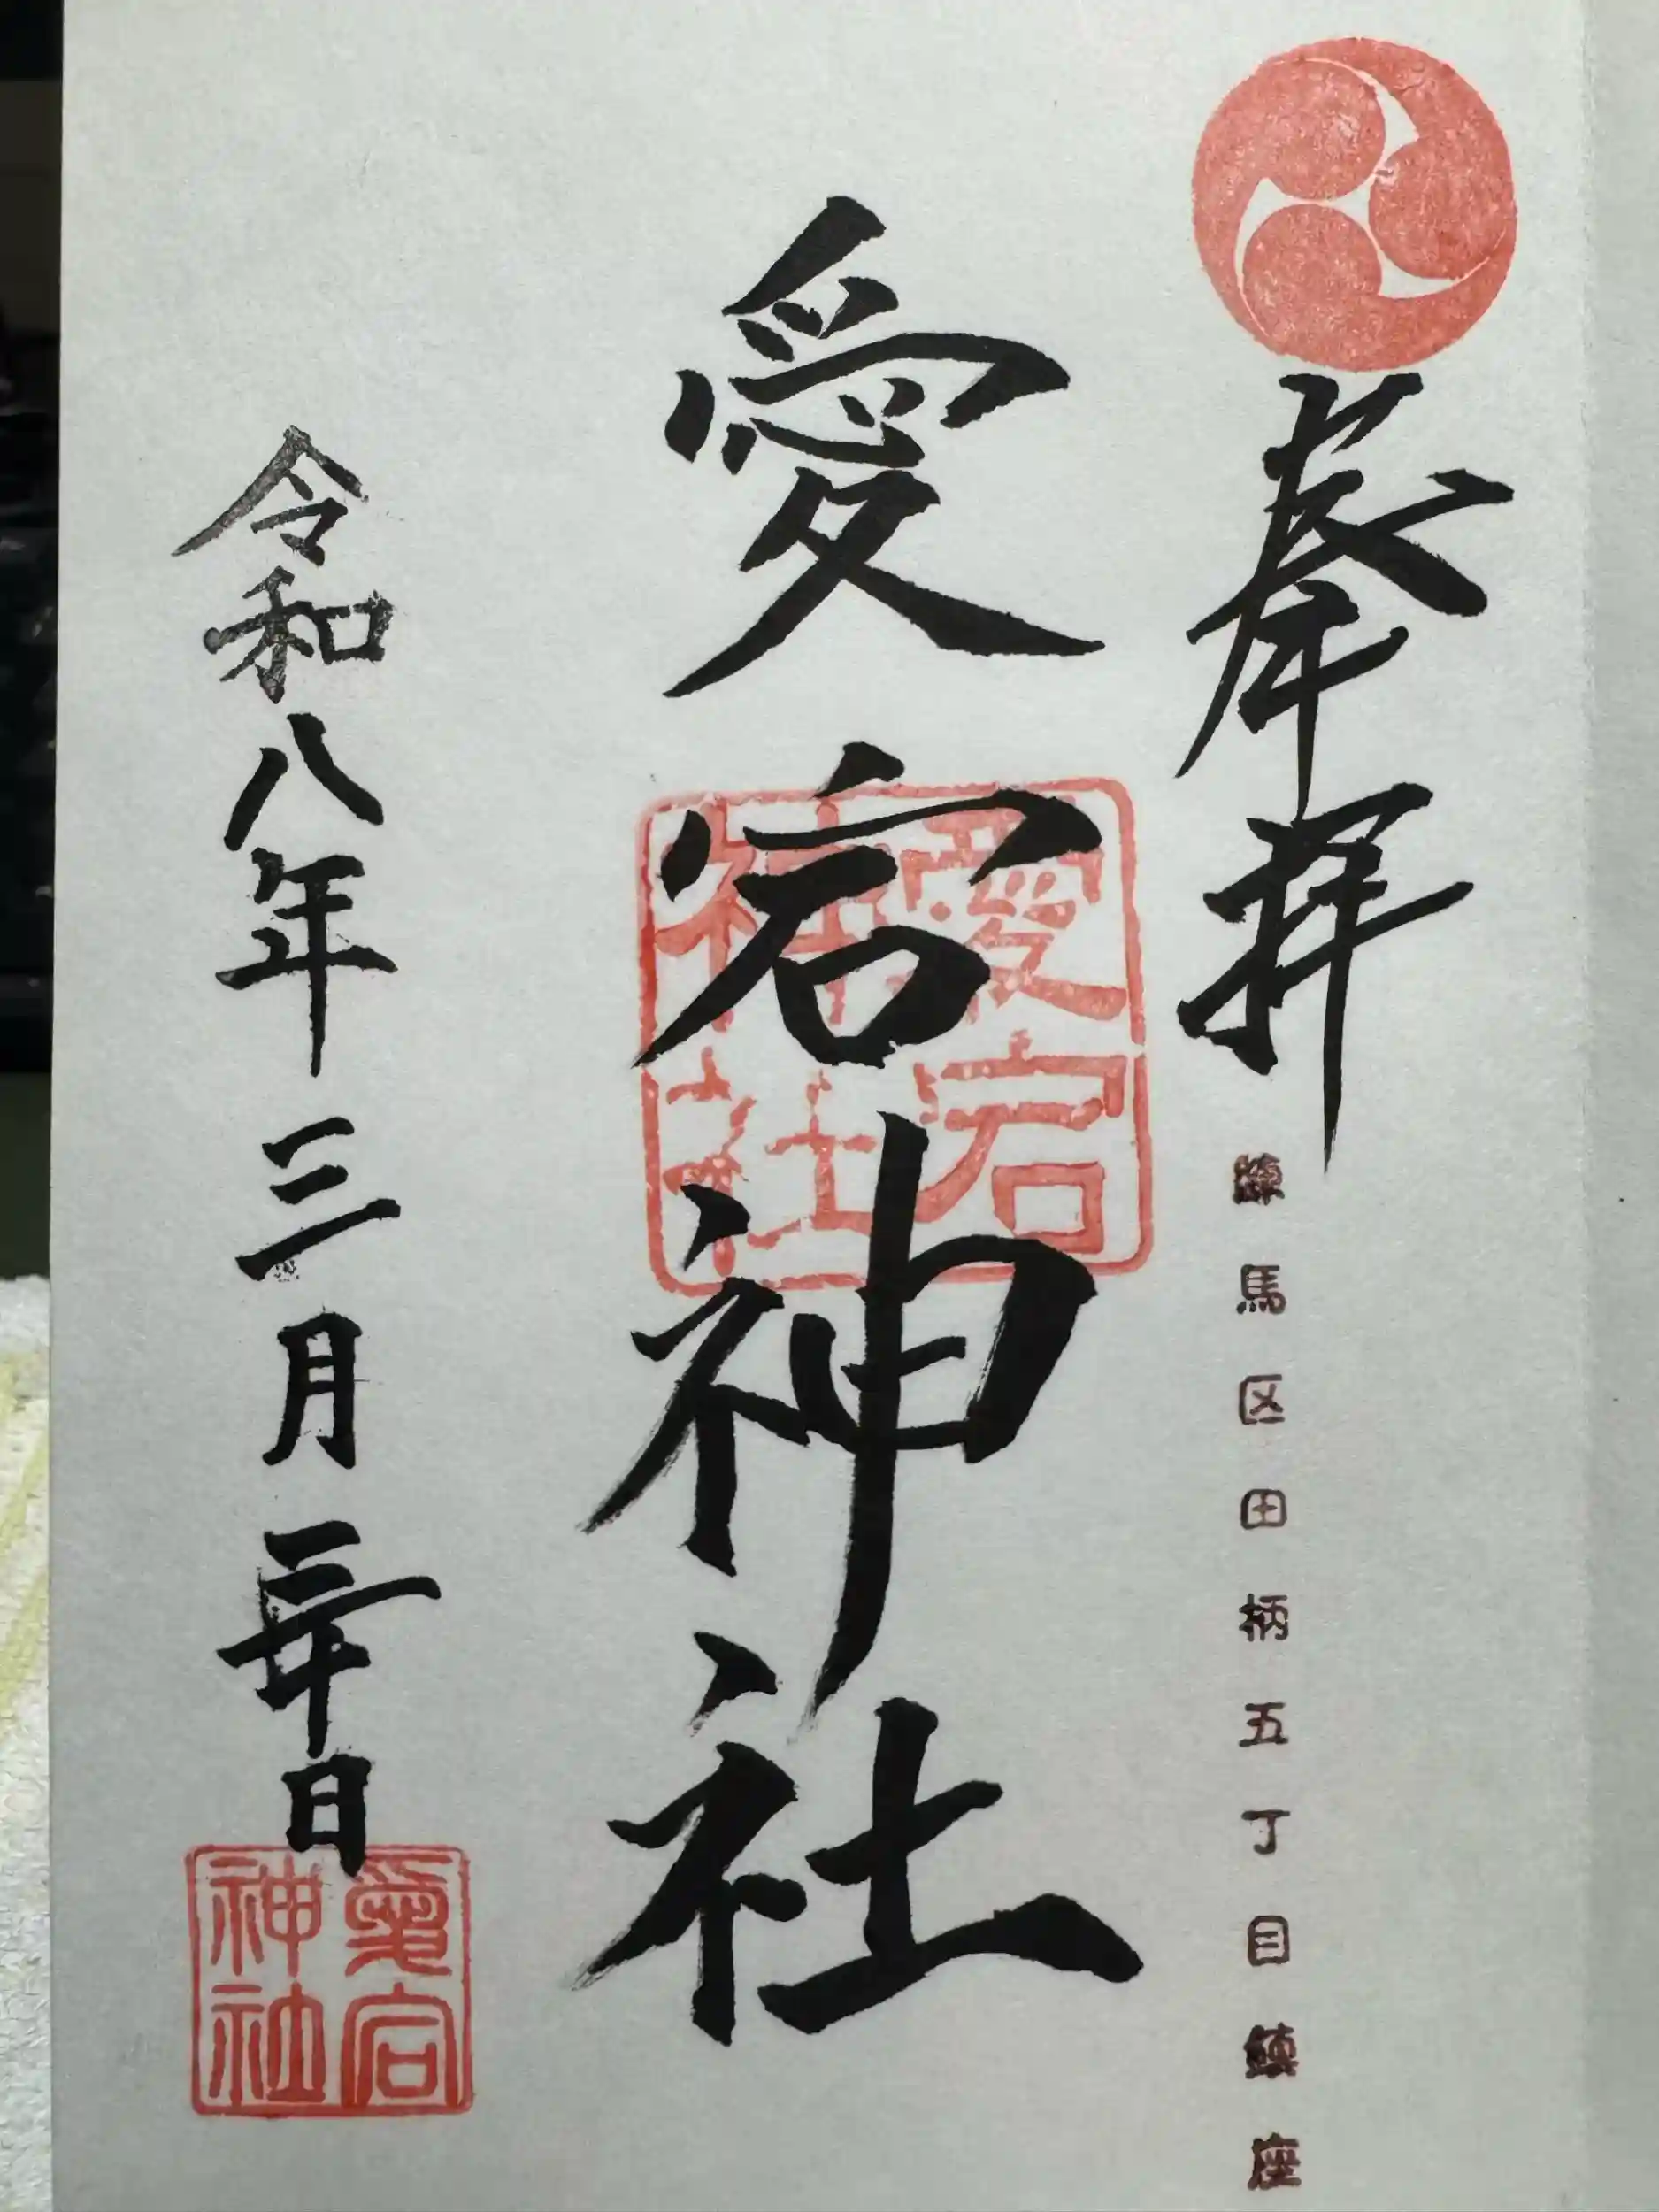 奉拝
練馬区田柄五丁目鎮座
愛宕神社
愛宕
神社
令和八年三月日
愛宕
神社